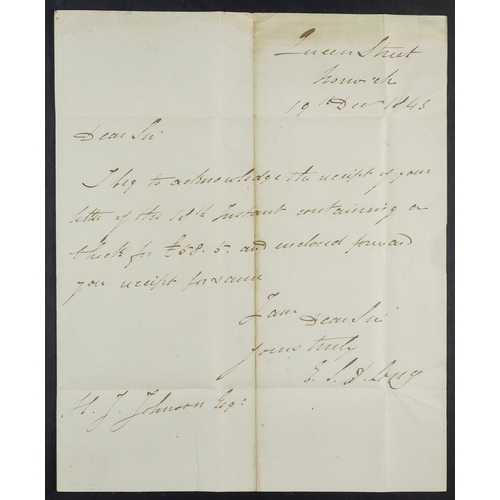 Queen Street
Norwich
19th Decr 1843
Dear Sir
I beg to acknowledge the receipt of your
letter of the 18th Instant containing a
Check for £58.5. and enclosed forward
you receipt for same
I am Dear Sir
Yours truly
Long
H. J. Johnson Esq: